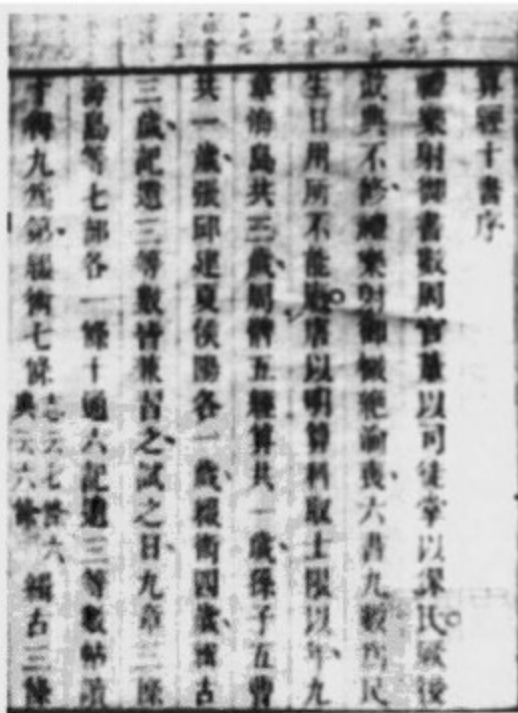 算經十書序
禮樂射御書數周官董以司徒掌以保氏厥後
典不修禮樂射御絶淪喪六書九數爲民
生日用所不能廢唐以明算科取士限以年九
章海島共三歲周髀五經算共一歲孫子五曹
共一歲張邱建夏侯陽各一歲綴術四歲緝古
三歲記遺三等數皆兼習之試之日九章三條
海島等七部各一條十通六記遺三等數帖讀
十得九爲第綴術七條志云七條六典云六條緝古三條